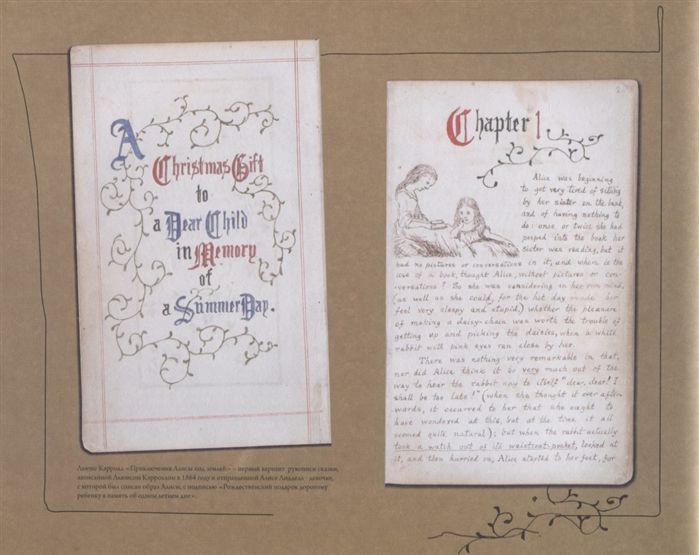 A
Christmas Gift
to
a Dear Child
in Memory
of
a Summer Day.
Льюис Кэрролл «Приключения Алисы под землей» – первый вариант рукописи сказки,
записанной Льюисом Кэрроллом в 1864 году и отправленной Алисе Лидделл - девочке,
с которой был списан образ Алисы, с подписью «Рождественский подарок дорогому
ребенку в память об одном летнем дне».
Chapter 1
Alice was beginning
to get very tired of sitting
by her sister on the bank,
and of having nothing to
do: once or twice she had
peeped into the book her
sister was reading, but it
had no pictures or conversations in it, and where is the
use of a book, thought Alice, without pictures or con-
-versations? So she was considering in her own mind,
(as well as she could, for the hot day made her
feel very sleepy and stupid,) whether the pleasure
of making a daisy-chain was worth the trouble of
getting up and picking the daisies, when a white
rabbit with pink eyes ran close by her.
There was nothing very remarkable in that,
nor did Alice think it so very much out of the
way to hear the rabbit say to itself "dear, dear! I
shall be too late!" (when she thought it over after-
-wards, it occurred to her that she ought to
have wondered at this, but at the time it all
seemed quite natural); but when the rabbit actually
took a watch out of its waistcoat-pocket, looked at
it, and then hurried on, Alice started to her feet, for